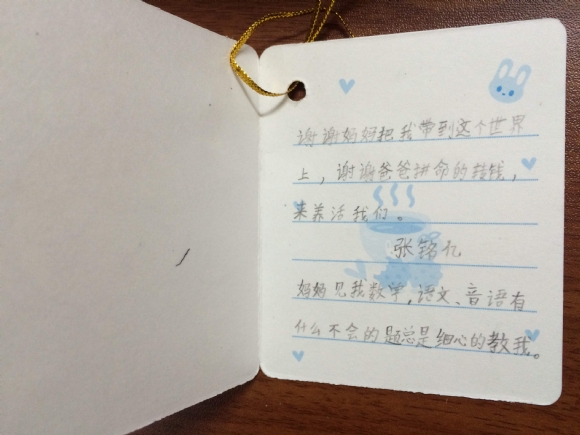 谢谢妈妈把我带到这个世界
上，谢谢爸爸拼命的挣钱，
来养活我们。
张铭亿
妈妈见我数学，语文、音语有
什么不会的题总是细心的教我。